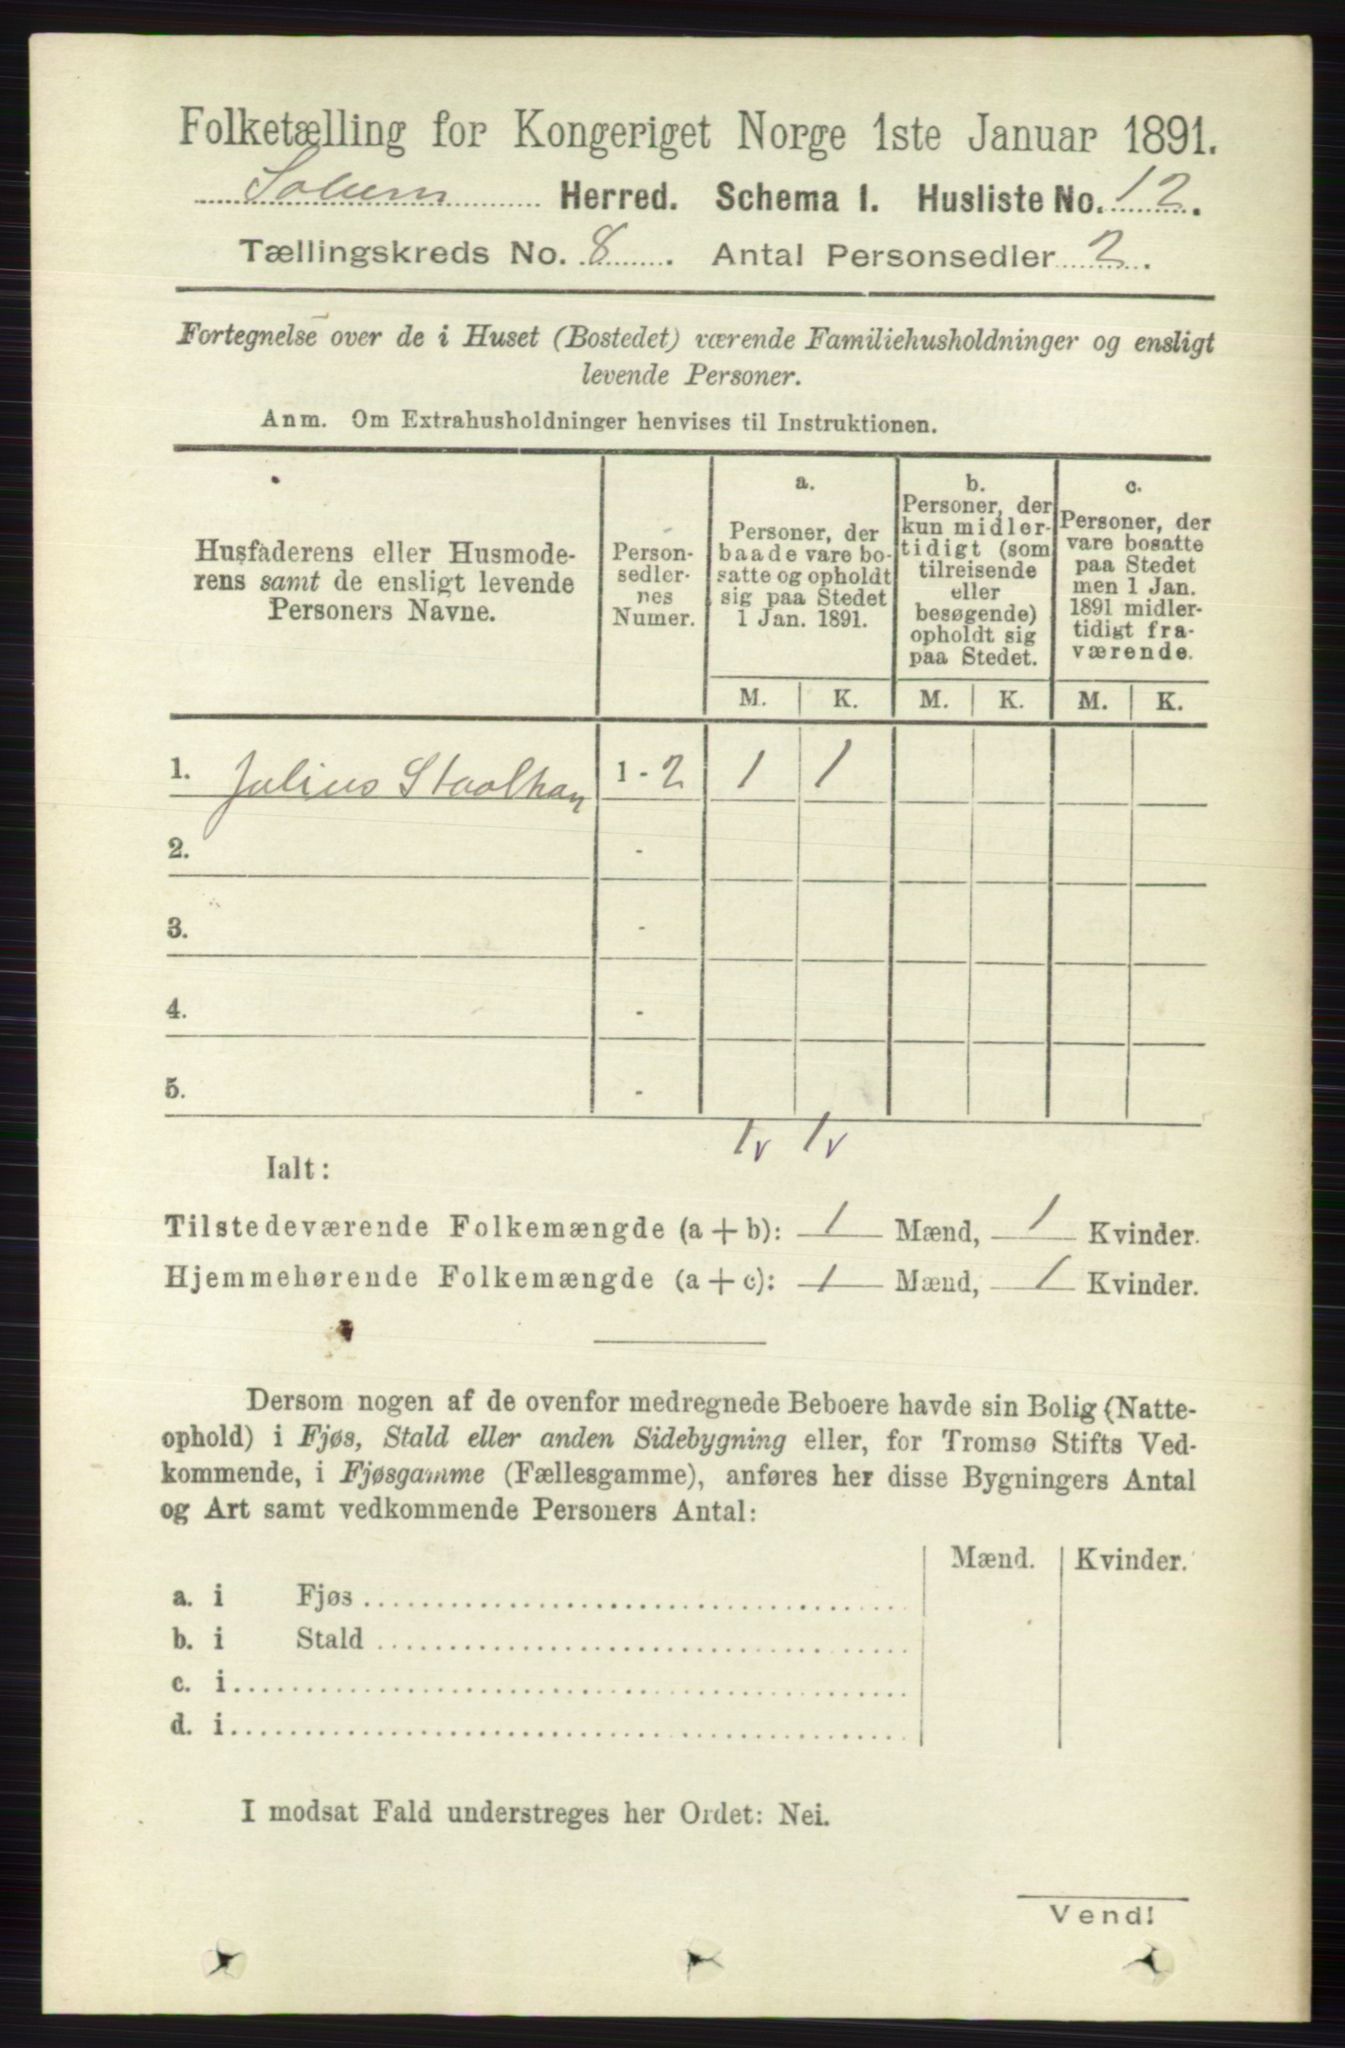 Folketælling for Kongeriget Norge 1ste Januar 1891.
Solum Herred. Schema 1. Husliste No. 12.
Tællingskreds No. 8. Antal Personsedler 2.
Fortegnelse over de i Huset (Bostedet) værende Familiehusholdninger og ensligt
levende Personer.
Anm. Om Extrahusholdninger henvises til Instruktionen.
Husfaderens eller Husmode-
rens samt de ensligt levende
Personers Navne.
Person-
sedler-
nes
Numer.
a.
Personer, der
baade vare bo-
satte og opholdt
sig paa Stedet
1 Jan. 1891.
b.
Personer, der
kun midler-
tidigt (som
tilreisende
eller
besøgende)
opholdt sig
paa Stedet.
c.
Personer, der
vare bosatte
paa Stedet
men 1 Jan.
1891 midler-
tidigt fra-
værende.
M. K. M. K. M. K.
1. Julius Staalhan 1 - 2 1 1
2. -
3. -
4. -
5. -
1v 1v
Ialt:
Tilstedeværende Folkemængde (a + b): 1 Mænd, 1 Kvinder.
Hjemmehørende Folkemængde (a + c): 1 Mænd, 1 Kvinder.
Dersom nogen af de ovenfor medregnede Beboere havde sin Bolig (Natte-
ophold) i Fjøs, Stald eller anden Sidebygning eller, for Tromsø Stifts Ved-
kommende, i Fjøsgamme (Fællesgamme), anføres her disse Bygningers Antal
og Art samt vedkommende Personers Antal:
Mænd. Kvinder.
a. i Fjøs
b. i Stald
c. i
d. i
I modsat Fald understreges her Ordet: Nei.
Vend!